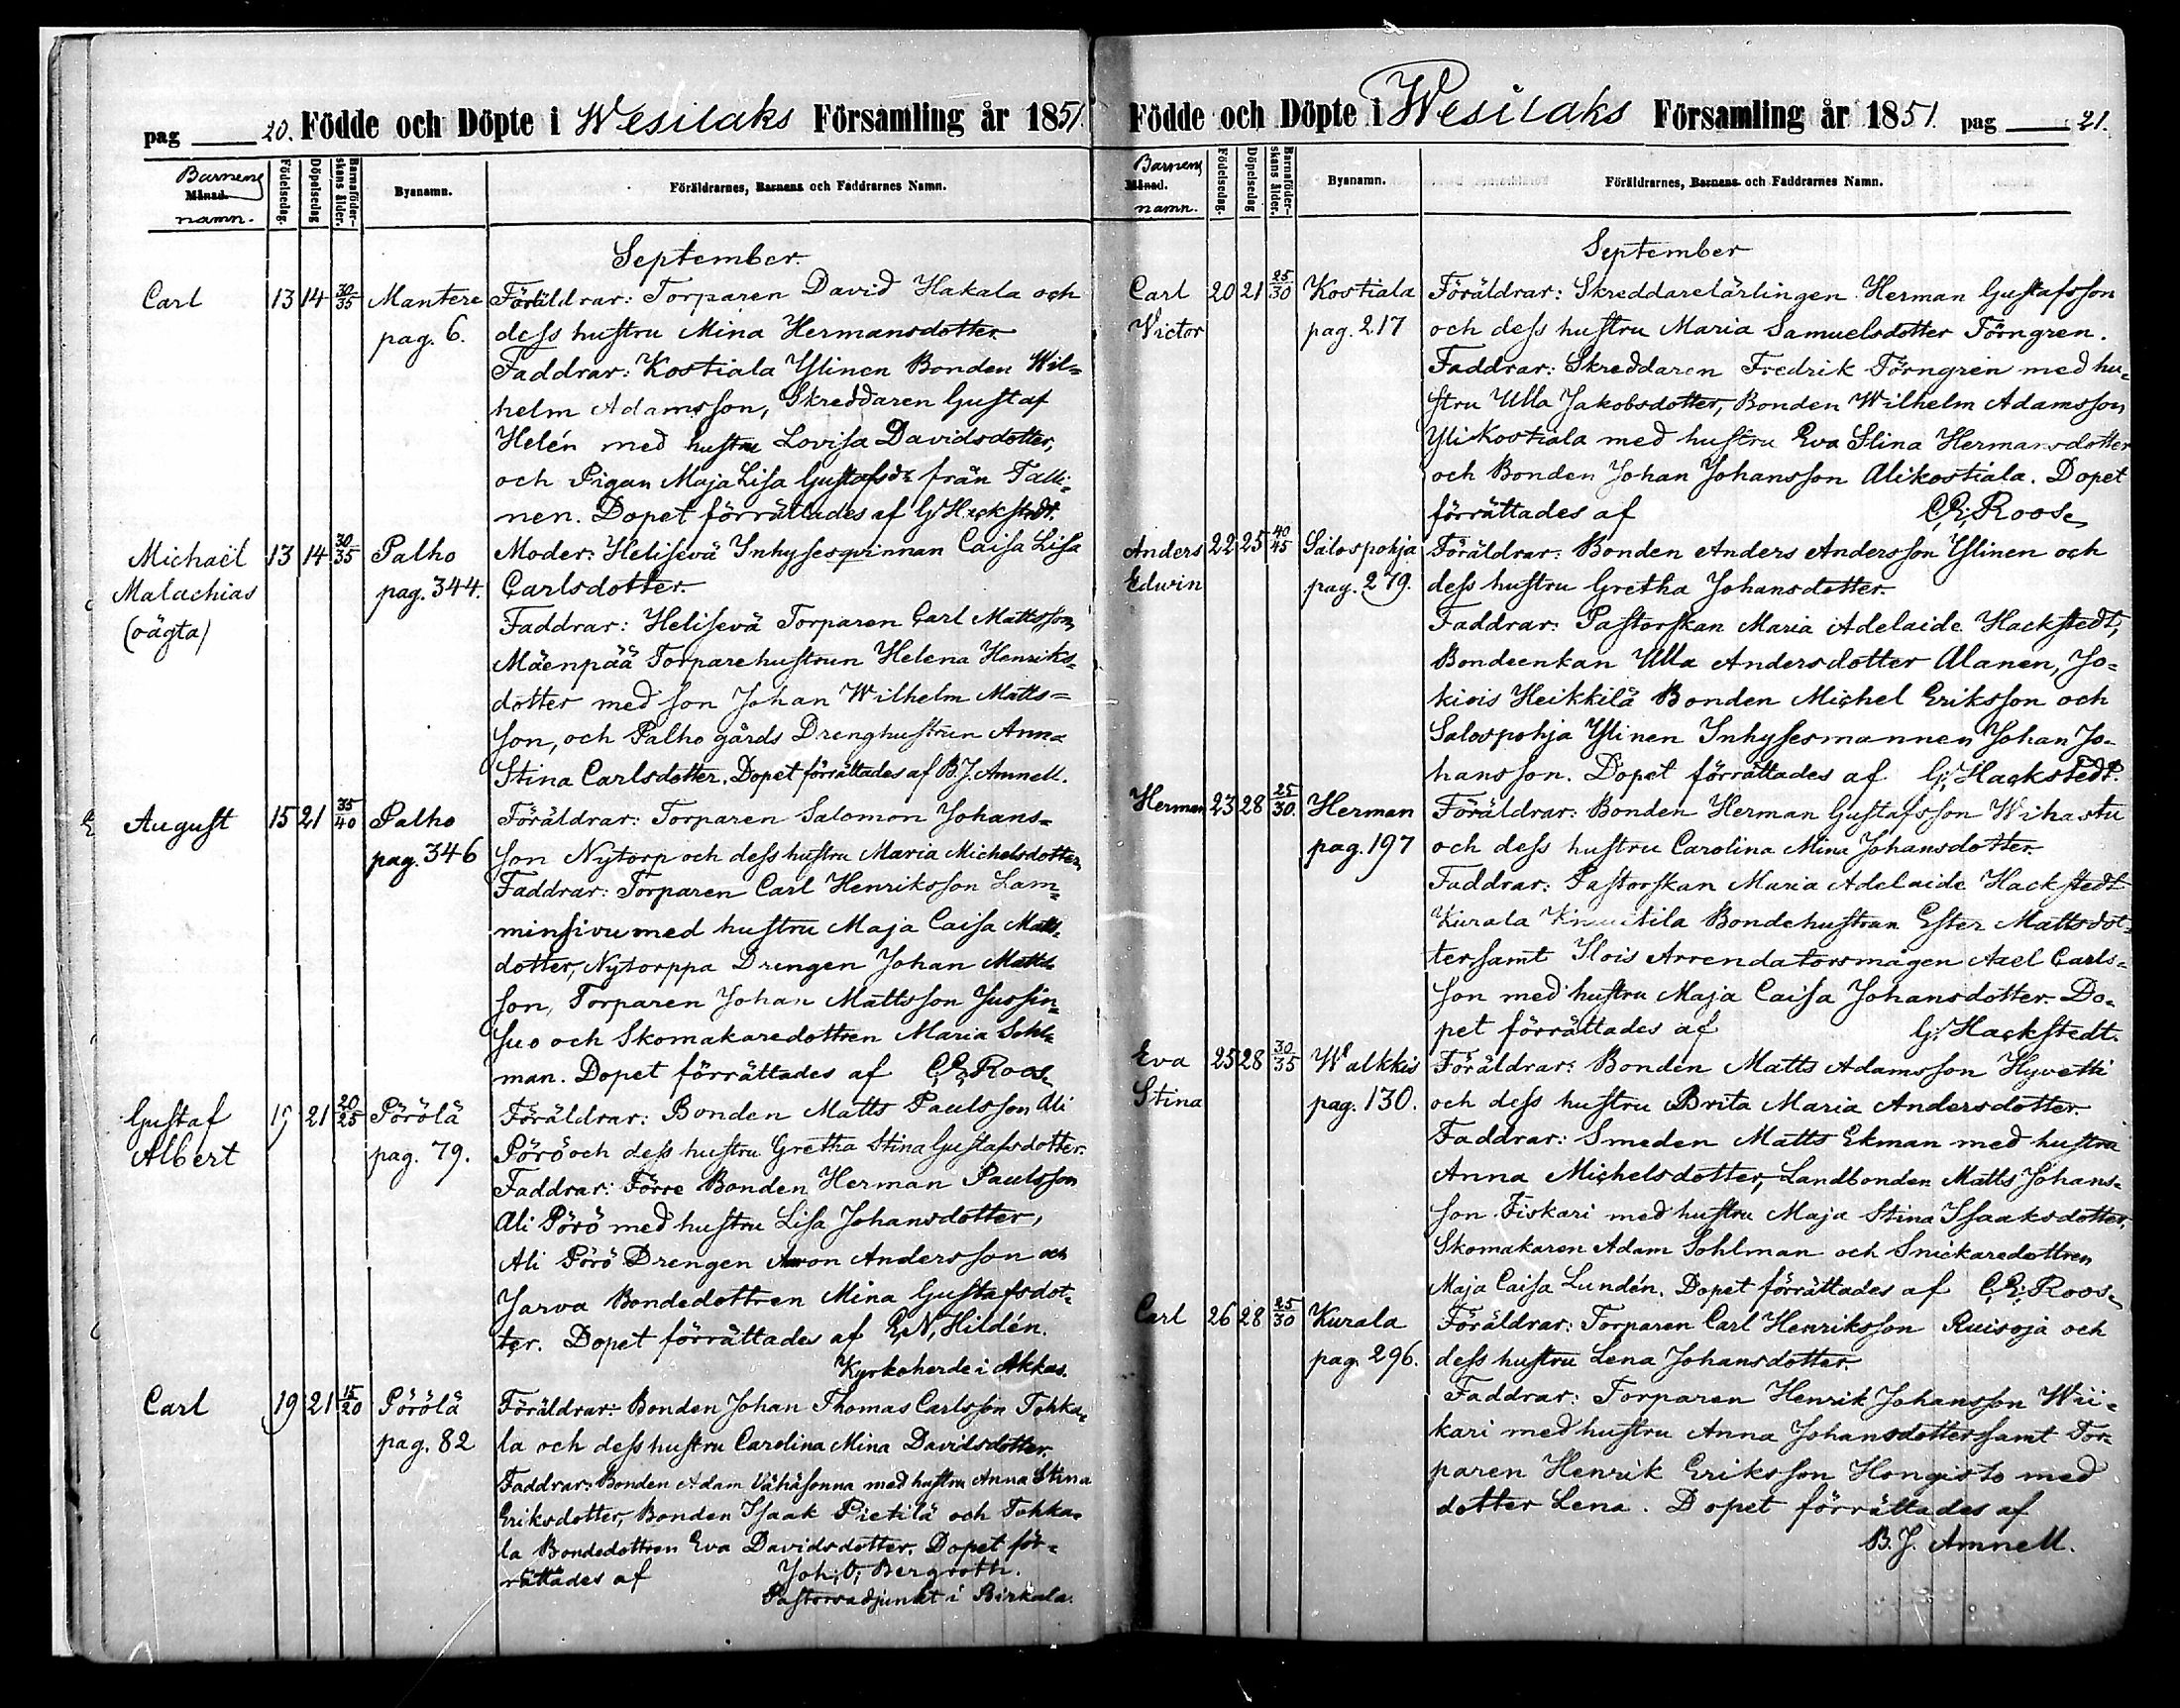 pag 20. Födde och Döpte i Wesilaks Församling år 1851.
Barnens Månad. namn.
Födelsedag.
Döpelsedag
Barnaföder-skans ålder.
Byanamn.
Föräldrarnes, Barnens och Faddrarnes Namn.
September.
Carl 13 14 30/35 Mantere Föräldrar: Torparen David Hakala och
pag. 6. dess hustru Mina Hermansdotter.
Faddrar: Kostiala Ylinen Bonden Wil=
helm Adamsson, Skreddaren Gustaf
Helén med hustru Lovisa Davidsdotter,
och Pigan Maja Lisa Gustafsdr från Talli=
nen. Dopet förrättades af G. Hackstedt.
Michaël 13 14 30/35 Palho Moder: Helisevä Inhysesqvinnan Caisa Lisa
Malachias pag. 344. Carlsdotter.
(oägta) Faddrar: Helisevä Torparen Carl Mattsson,
Mäenpää Torparehustrun Helena Henriks=
dotter med son Johan Wilhelm Matts=
son, och Palho gårds Drenghustrun Anna
Stina Carlsdotter. Dopet förrättades af B.J. Amnell.
August 15 21 35/40 Palho Föräldrar: Torparen Salomon Johans=
pag. 346 son Nytorp och dess hustru Maria Michelsdotter.
Faddrar: Torparen Carl Henriksson Lam=
minsivu med hustru Maja Caisa Matts=
dotter, Nytorppa Drengen Johan Matts=
son, Torparen Johan Mattsson Jussin=
suo och Skomakaredottren Maria Sohl=
man. Dopet förrättades af C.E. Roos.
Gustaf 19 21 20/25 Pörölä Föräldrar: Bonden Matts Paulsson Ali
Albert pag. 79. Pörö och dess hustru Gretha Stina Gustafsdotter.
Faddrar: Förre Bonden Herman Paulsson
Ali Pörö med hustru Lisa Johansdotter,
Ali Pörö Drengen Aron Andersson och
Jarva Bondedottren Mina Gustafsdot=
ter. Dopet förrättades af E.N. Hildén.
Kyrkoherde i Akkas.
Carl 19 21 15/20 Pörölä Föräldrar: Bonden Johan Thomas Carlsson Tohka=
pag. 82 la och dess hustru Carolina Mina Davidsdotter.
Faddrar: Bonden Adam Vähäsonna med hustru Anna Stina
Eriksdotter, Bonden Isaak Pietilä och Tohka=
la Bondedottren Eva Davidsdotter. Dopet för=
rättades af Joh. O. Bergroth.
Pastorsadjunkt i Birkala.
Födde och Döpte i Wesilaks Församling år 1851. pag 21.
Barnens Månad. namn.
Födelsedag.
Döpelsedag
Barnaföder-skans ålder.
Byanamn.
Föräldrarnes, Barnens och Faddrarnes Namn.
September
Carl 20 21 25/30 Kostiala Föräldrar: Skreddarelärlingen Herman Gustafsson
Victor pag. 217 och dess hustru Maria Samuelsdotter Törngren.
Faddrar: Skreddaren Fredrik Törngren med hu=
stru Ulla Jakobsdotter, Bonden Wilhelm Adamsson
Ylikostiala med hustru Eva Stina Hermansdotter
och Bonden Johan Johansson Alikostiala. Dopet
förrättades af C.E. Roos.
Anders 22 25 40/45 Salospohja Föräldrar: Bonden Anders Andersson Ylinen och
Edwin pag. 279. dess hustru Gretha Johansdotter.
Faddrar: Pastorskan Maria Adelaide Hackstedt,
Bondeenkan Ulla Andersdotter Alanen, Jo=
kiois Heikkilä Bonden Michel Eriksson och
Salospohja Ylinen Inhysesmannen Johan Jo=
hansson. Dopet förrättades af G. Hackstedt.
Herman 23 28 25/30. Herman Föräldrar: Bonden Herman Gustafsson Wihastu
pag. 197 och dess hustru Carolina Mina Johansdotter.
Faddrar: Pastorskan Maria Adelaide Hackstedt
Kurala Bondehustrun Ester Mattsdot=
ter samt Ilois Arrendatorsmågen Axel Carls=
son med hustru Maja Caisa Johansdotter. Do=
pet förrättades af G. Hackstedt.
Eva 25 28 30/35 Walkkis Föräldrar: Bonden Matts Adamsson Hyvetti
Stina pag. 130. och dess hustru Brita Maria Andersdotter.
Faddrar: Smeden Matts Ekman med hustru
Anna Michelsdotter, Landbonden Matts Johans=
son Fiskari med hustru Maja Stina Isaaksdotter,
Skomakaren Adam Sohlman och Snickaredottren
Maja Caisa Lundén. Dopet förrättades af C.E. Roos.
Carl 26 28 25/30 Kurala Föräldrar: Torparen Carl Henriksson Ruisoja och
pag. 296. dess hustru Lena Johansdotter.
Faddrar: Torparen Henrik Johansson Wii=
kari med hustru Anna Johansdotter samt Tor=
paren Henrik Eriksson Hongisto med
dotter Lena. Dopet förrättades af
B.J. Amnell.